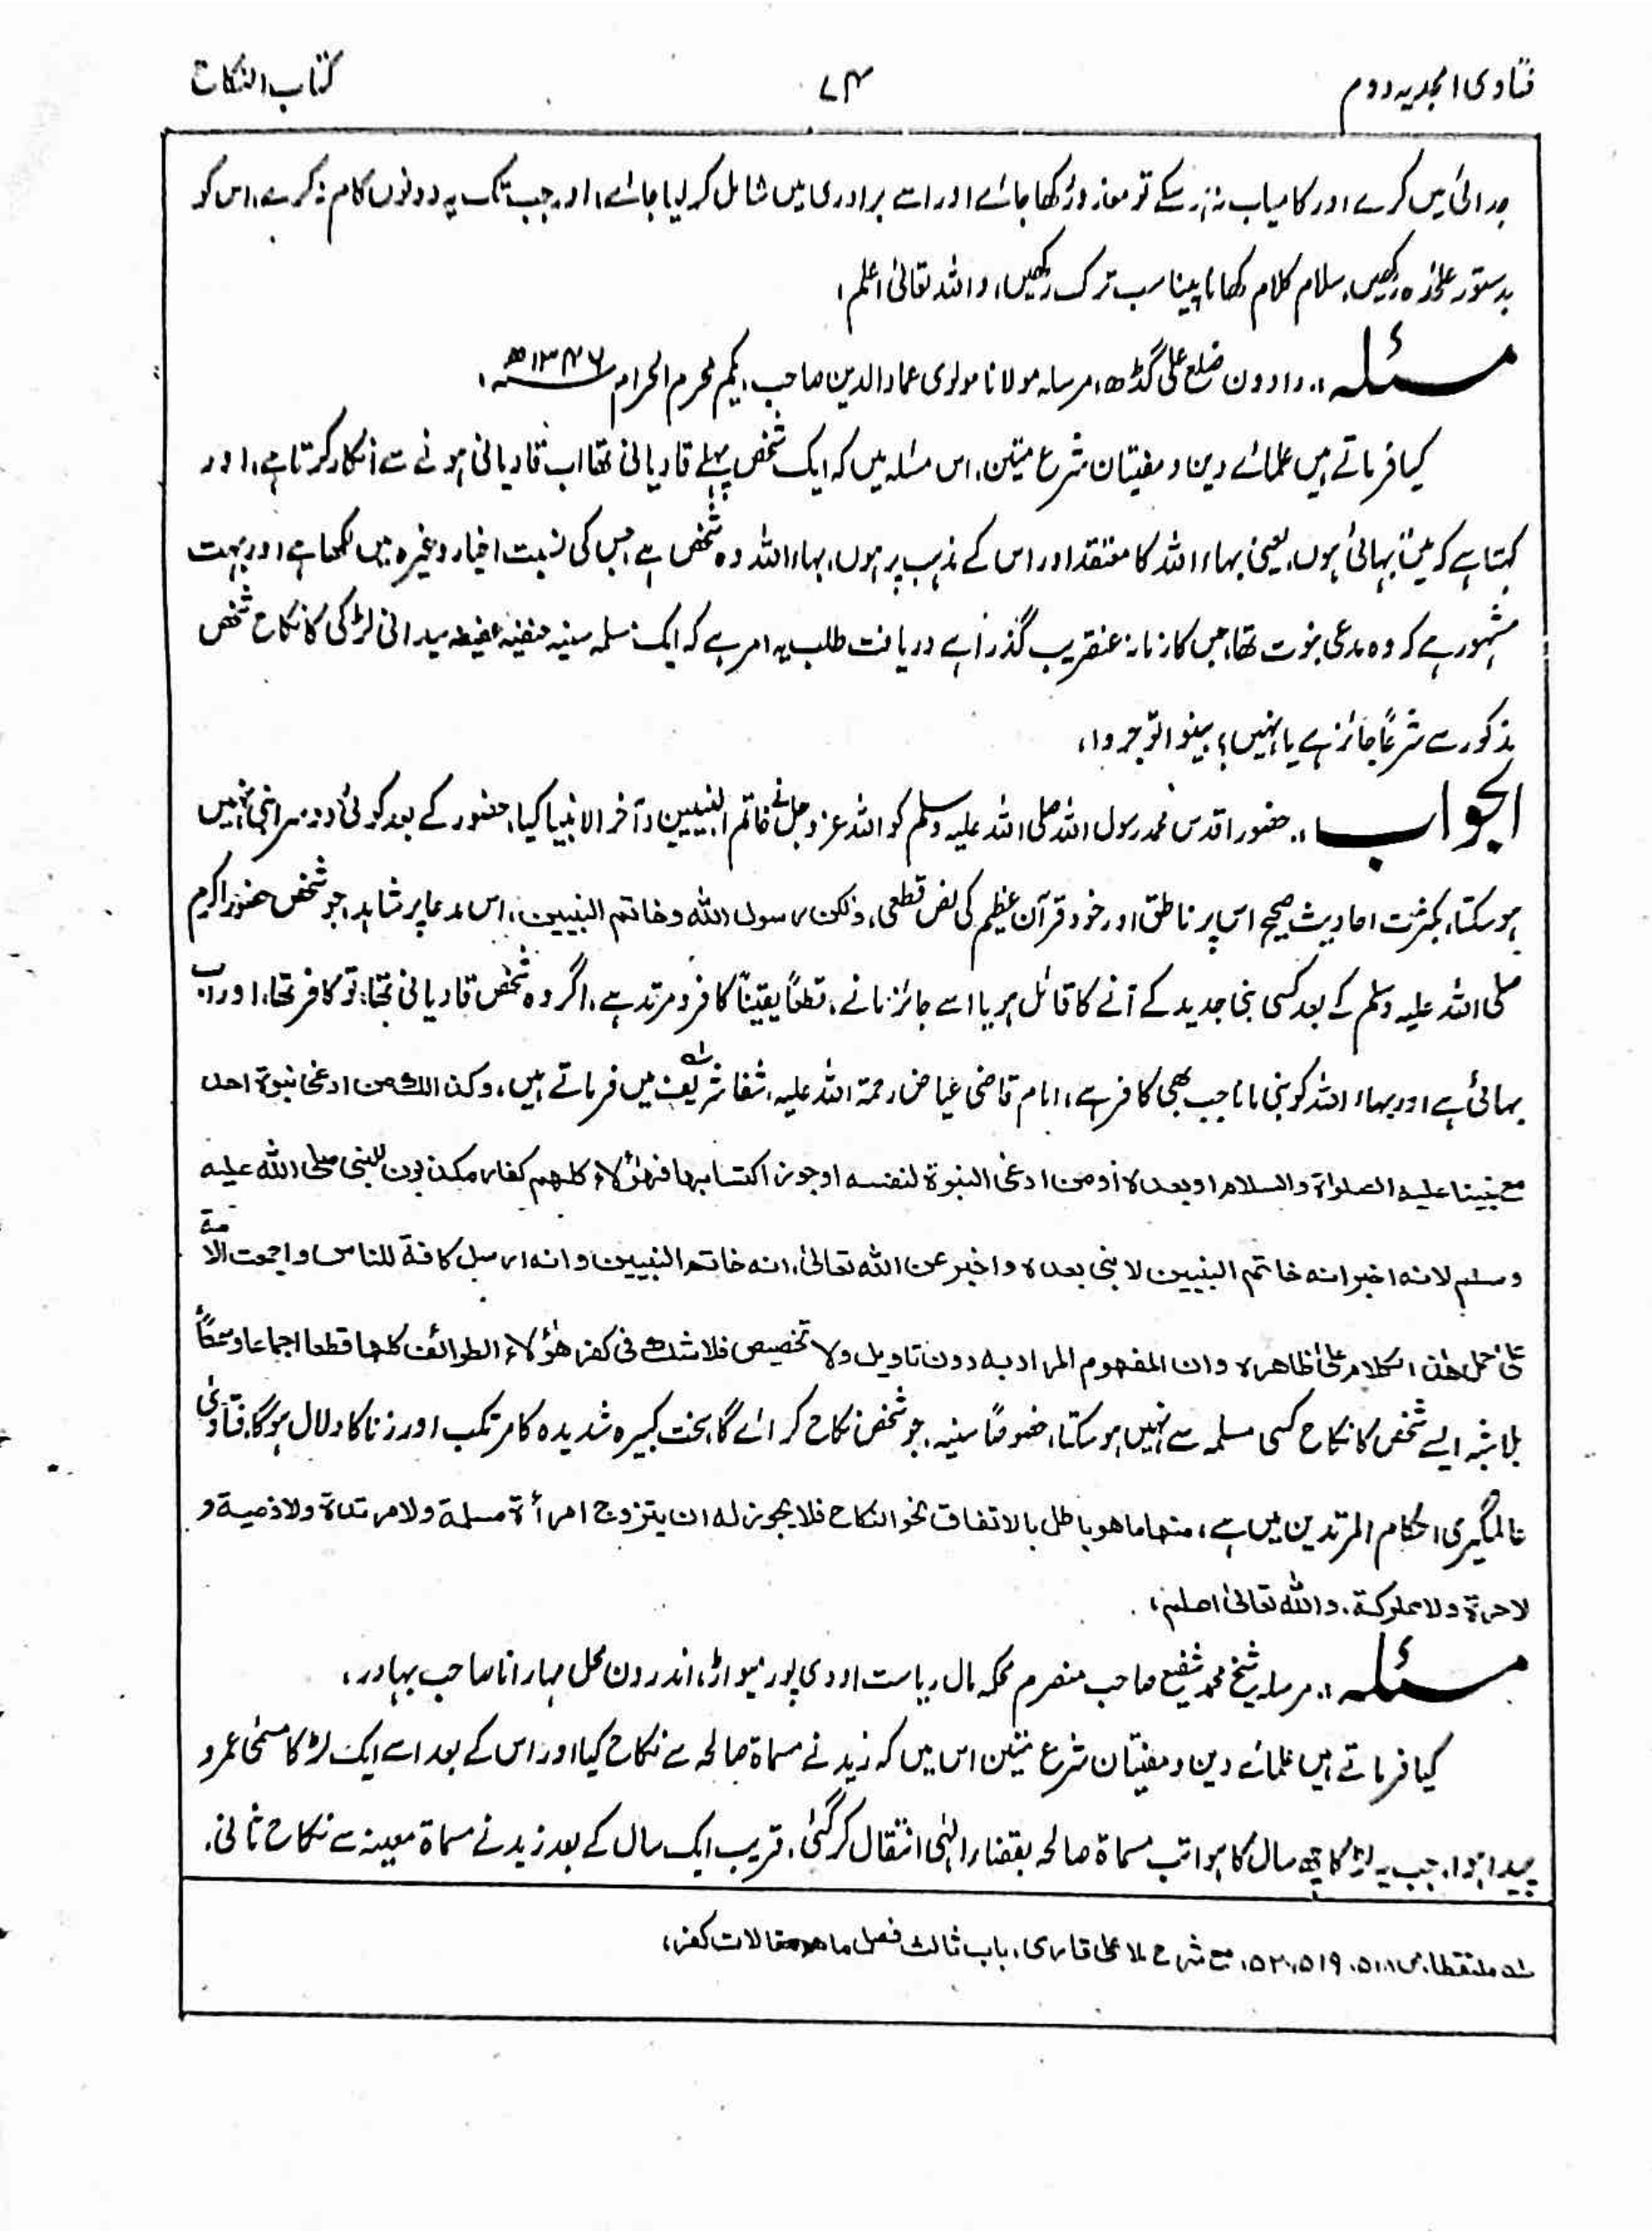 فتاوی امجدیہ دوم
۷۴
کتاب النکاح
جدائی میں کرے اور کامیاب نہ ہو سکے تو معذور رکھا جائے اور اسے برادری میں شامل کر لیا جائے، اور جب تک یہ دونوں کام نہ کرے، اس کو
بدستور علیحدہ رکھیں، سلام کلام کھانا پینا سب ترک رکھیں، واللہ تعالیٰ اعلم،
مسئلہ:۔ دادون ضلع علی گڈھ، مرسلہ مولانا مولوی عماد الدین صاحب، یکم محرم الحرام ۱۳۴۶ھ،
کیا فرماتے ہیں علمائے دین و مفتیان شرع متین، اس مسئلہ میں کہ ایک شخص پہلے قادیانی تھا اب قادیانی ہونے سے انکار کرتا ہے، اور
کہتا ہے کہ میں بہائی ہوں، یعنی بہاء اللہ کا معتقد اور اس کے مذہب پر ہوں، بہاء اللہ وہ شخص ہے جس کی نسبت اخبار وغیرہ میں لکھا ہے اور بہت
مشہور ہے کہ وہ مدعی نبوت تھا، جس کا زمانہ عنقریب گذرا ہے دریافت طلب یہ امر ہے کہ ایک مسلمہ سنیہ حنفیہ عفیفہ سیدانی لڑکی کا نکاح شخص
مذکور سے شرعًا جائز ہے یا نہیں؟ بینوا توجروا،
الجواب:۔ حضور اقدس محمد رسول اللہ صلی اللہ علیہ وسلم کو اللہ عزوجل نے خاتم النبیین و آخر الانبیا کیا، حضور کے بعد کوئی دوسرا نبی نہیں
ہو سکتا، بکثرت احادیث صحیحہ اس پر ناطق اور خود قرآن عظیم کی نص قطعی، ولکن رسول اللہ وخاتم النبیین، اس مدعا پر شاہد، جو شخص حضور اکرم
صلی اللہ علیہ وسلم کے بعد کسی نبی جدید کے آنے کا قائل ہو یا اسے جائز مانے، قطعًا یقینًا کافر و مرتد ہے، اگر وہ شخص قادیانی تھا، تو کافر تھا، اور اب
بہائی ہے اور بہاء اللہ کو نبی مانا جب بھی کافر ہے، امام قاضی عیاض رحمۃ اللہ علیہ شفا شریف میں فرماتے ہیں، وکذالک من ادعیٰ نبوۃ احد
مع نبینا علیہ الصلوٰۃ والسلام او بعدہ أو من ادعیٰ النبوۃ لنفسہ او جوز اکتسابہا فہؤلاء کلہم کفار مکذبون للنبی صلی اللہ علیہ
وسلم لانہ اخبر انہ خاتم النبیین لا نبی بعدہ واخبر عن اللہ تعالیٰ، انہ خاتم النبیین وانہ ارسل کافۃ للناس واجمعت الامۃ
علی حمل ھٰذا الکلام علیٰ ظاھرہ وان المفہوم المراد بہ دون تاویل ولا تخصیص فلا شک فی کفر ھٰؤلاء الطوائف کلہا قطعا اجماعا وسمعًا
بلاشبہ ایسے شخص کا نکاح کسی مسلمہ سے نہیں ہو سکتا، خصوصًا سنیہ، جو شخص نکاح کرائے گا، سخت کبیرہ شدیدہ کا مرتکب اور زنا کا دلال ہوگا، فتاویٰ
عالمگیری احکام المرتدین میں ہے، منھا ما ھو باطل بالاتفاق نحو النکاح فلا یجوز لہ ان یتزوج امرأۃ مسلمۃ ولا مرتدۃ ولا ذمیۃ و
لا حرۃ ولا مملوکۃ، واللہ تعالیٰ اعلم،
مسئلہ:۔ مرسلہ شیخ محمد شفیع صاحب منصرم محکمہ مال ریاست اودی پور میواڑ، اندرون محل مہارانا صاحب بہادر،
کیا فرماتے ہیں علمائے دین و مفتیان شرع متین اس میں کہ زید نے مسماۃ صالحہ سے نکاح کیا اور اس کے بعد اسے ایک لڑکا مسمی عمرو
پیدا ہوا، جب یہ لڑکا چھ سال کا ہوا تب مسماۃ صالحہ بقضاء الٰہی انتقال کر گئی، قریب ایک سال کے بعد زید نے مسماۃ معینہ سے نکاح ثانی،
لہ ملتقطا، ص ۵۱۸، ۵۱۹، ۵۲۰، مع شرح ملا علی قاری، باب ثالث فصل ما ھو مقالات کفر،